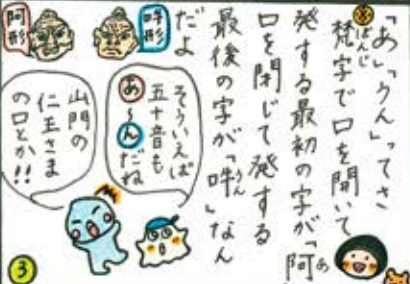 「あ」「うん」ってさ
※
梵字で口を開いて
ぼんじ
発する最初の字が「阿」
あ
口を閉じて発する
最後の字が「吽」なん
うん
だよ
吽形
阿形
そういえば
五十音も
あ〜んだね
山門の
仁王さま
の口とか!!
3